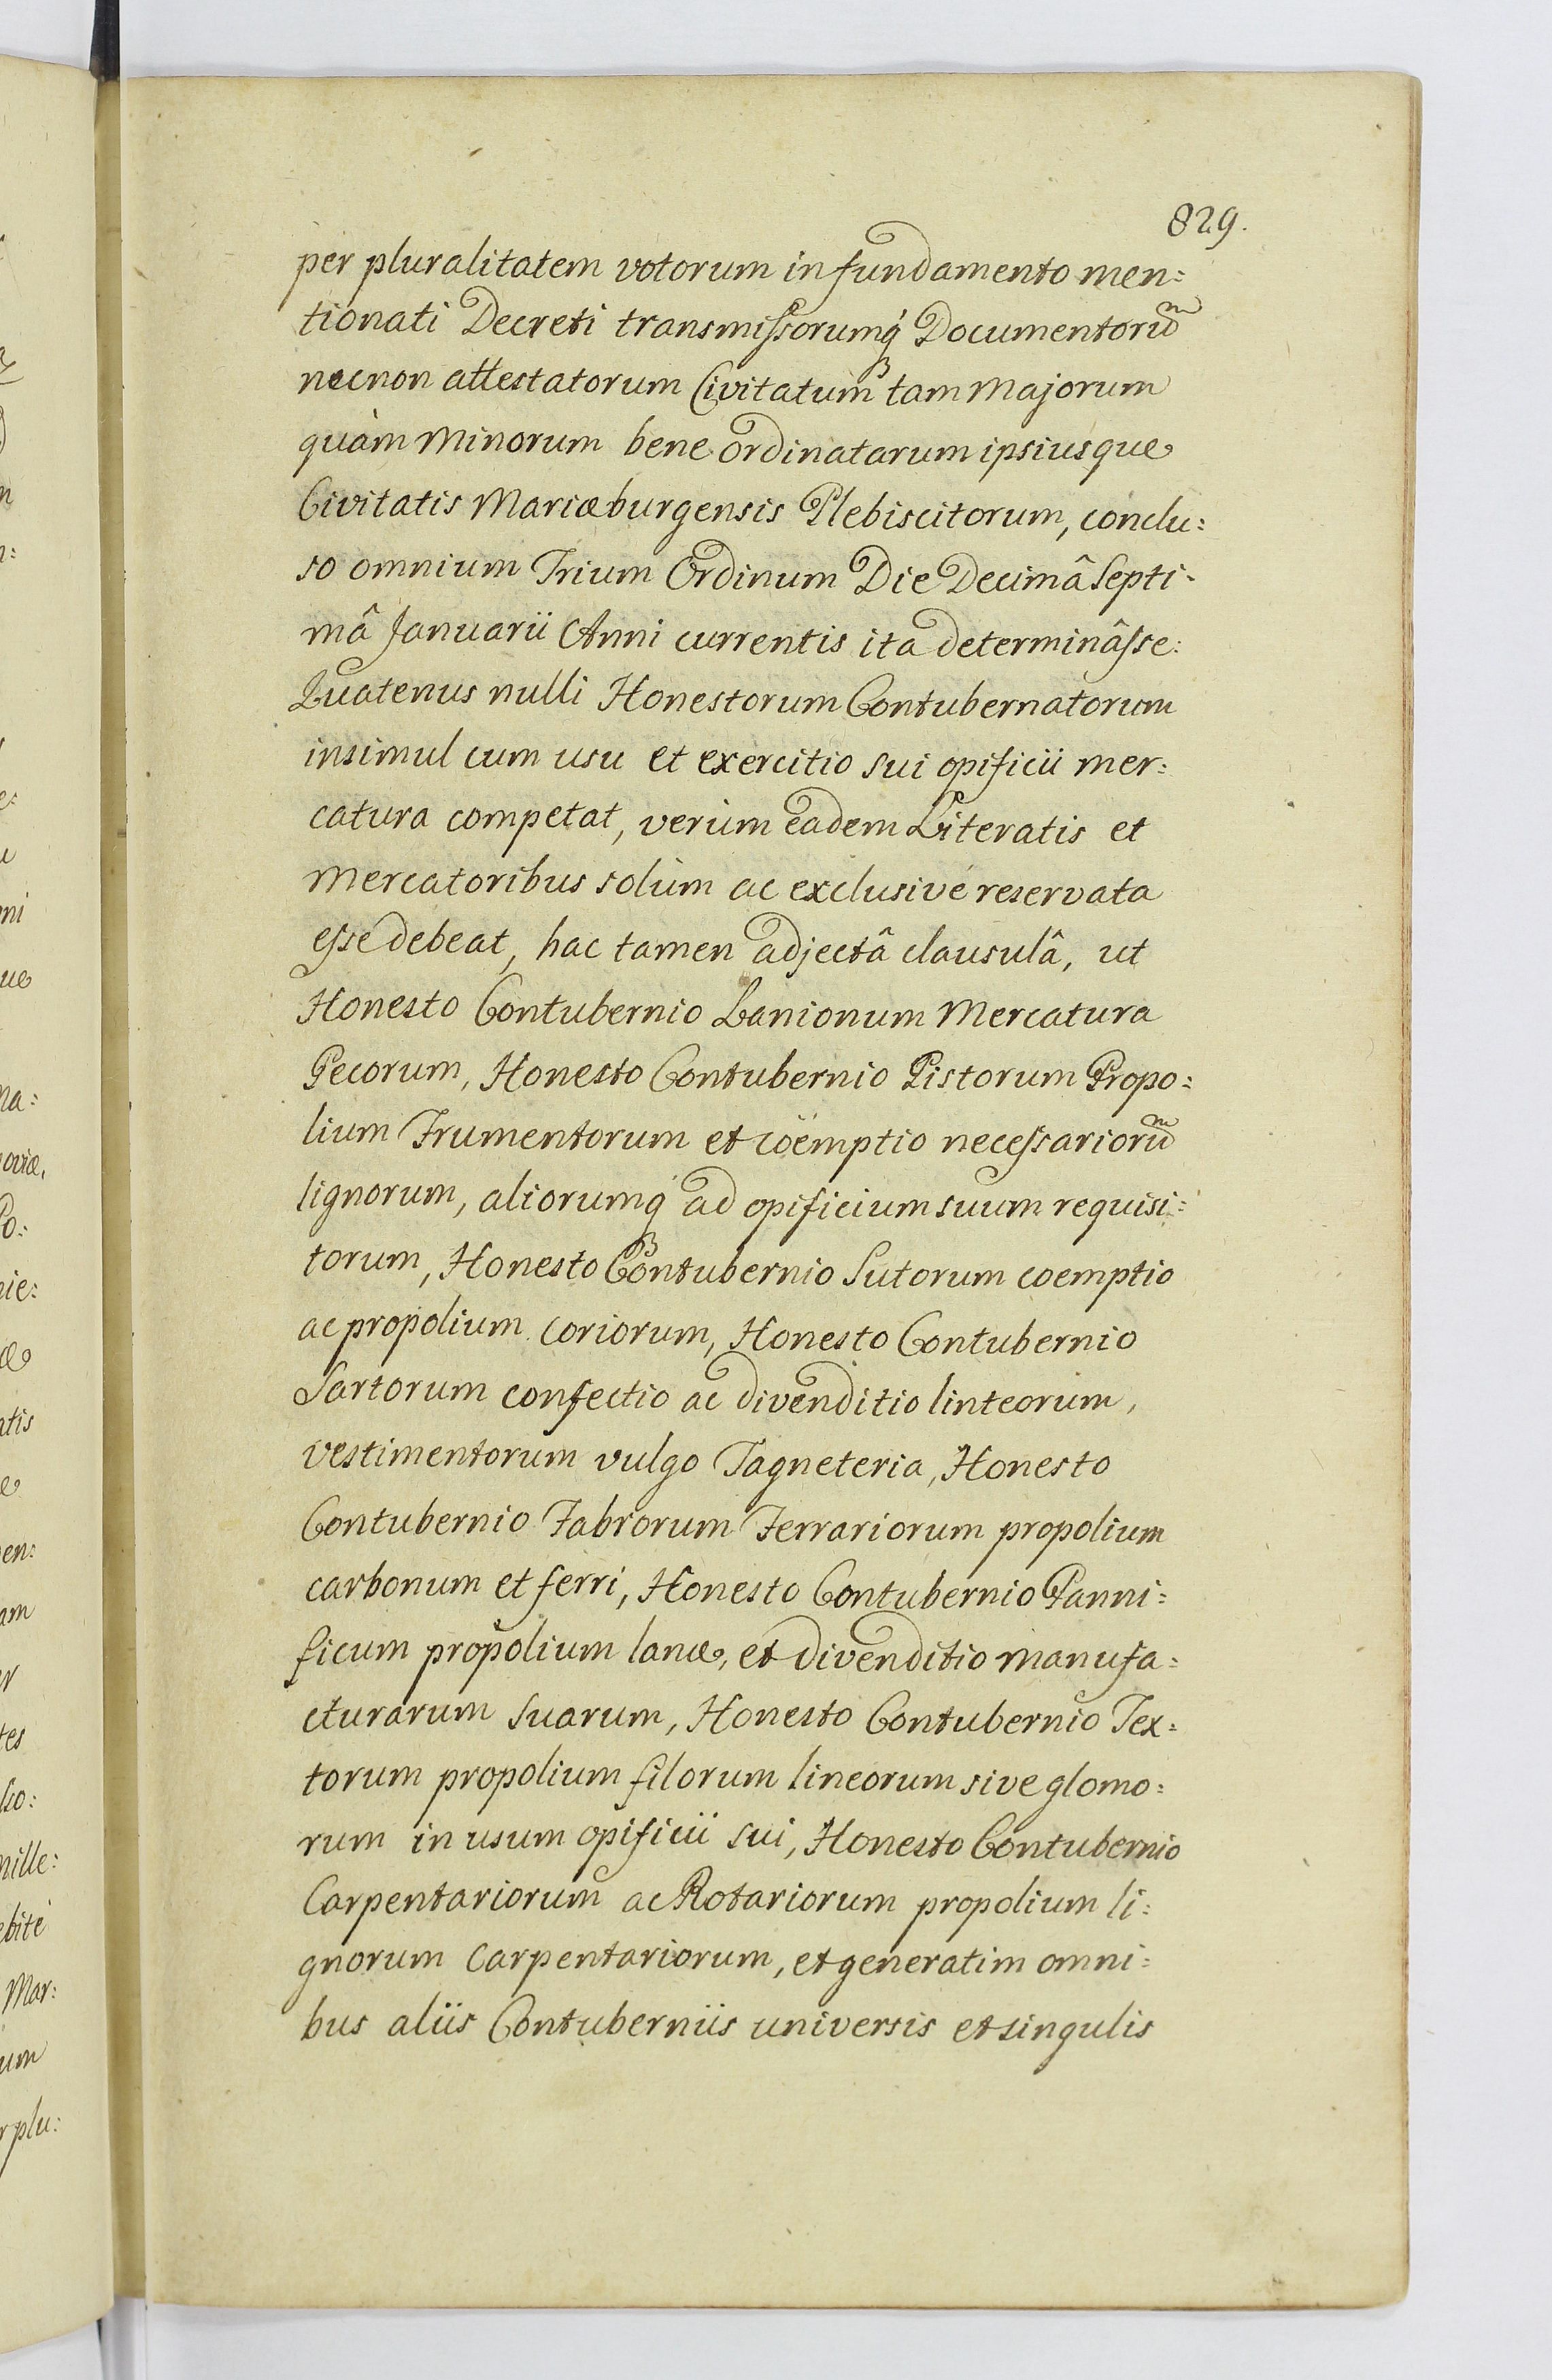 829.
per pluralitatem votorum in fundamento men:
tionati Decreti transmissorumq́ Documentorũ
necnon attestatorum Civitatum tam Majorum
quàm Minorum bene ordinatarum ipsiusque
Civitatis Mariæburgensis Plebiscitorum, conclu:
so omnium Trium Ordinum Die Decimâ Septi-
mâ Januarii Anni currentis ita determinâsse:
Quatenus nulli Honestorum Contubernatorum
insimul cum usu et exercitio sui opificii mer:
catura competat, verùm eadem Literatis et
Mercatoribus solùm ac exclusivé reservata
esse debeat, hac tamen adjectâ clausulâ, ut
Honesto Contubernio Lanionum Mercatura
Pecorum, Honesto Contubernio Pistorum Propo:
lium Frumentorum et coëmptio necessariorũ
lignorum, aliorumq́ ad opificium suum requisi:
torum, Honesto Contubernio Sutorum coemptio
ac propolium coriorum, Honesto Contubernio
Sartorum confectio ac divenditio linteorum,
vestimentorum vulgo Tagneteria, Honesto
Contubernio Fabrorum Ferrariorum propolium
carbonum et ferri, Honesto Contubernio Panni:
ficum propolium lanæ, et divenditio manufa:
cturarum suarum, Honesto Contubernio Tex:
torum propolium filorum lineorum sive glomo:
rum in usum opificii sui, Honesto Contubernio
Carpentariorum ac Rotariorum propolium li:
gnorum Carpentariorum, et generatim omni:
bus aliis Contuberniis universis et singulis